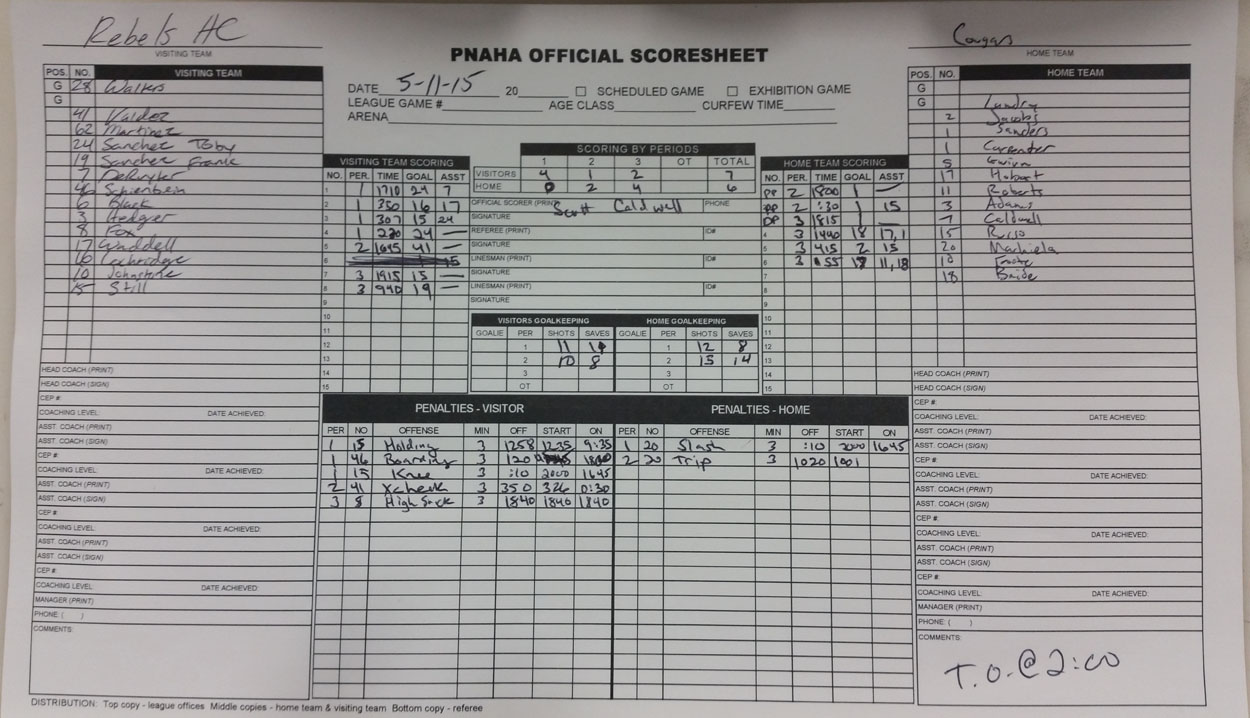 Rebels HC
VISITING TEAM
Cougars
HOME TEAM
PNAHA OFFICIAL SCORESHEET
DATE 5-11-15 20 ☐ SCHEDULED GAME ☐ EXHIBITION GAME
LEAGUE GAME # AGE CLASS CURFEW TIME
ARENA
POS. NO. VISITING TEAM
G 28 Walters
G
41 Valdez
62 Martinez
24 Sanchez Toby
19 Sanchez Frank
7 DeRuyter
46 Schienbein
6 Black
3 Hedger
8 Fox
17 Waddell
16
10 Johnstone
15 Still
HEAD COACH (PRINT)
HEAD COACH (SIGN)
CEP #:
COACHING LEVEL: DATE ACHIEVED:
ASST. COACH (PRINT)
ASST. COACH (SIGN)
CEP #:
COACHING LEVEL: DATE ACHIEVED:
ASST. COACH (PRINT)
ASST. COACH (SIGN)
CEP #:
COACHING LEVEL: DATE ACHIEVED:
ASST. COACH (PRINT)
ASST. COACH (SIGN)
CEP #:
COACHING LEVEL: DATE ACHIEVED:
MANAGER (PRINT)
PHONE: ( )
COMMENTS:
VISITING TEAM SCORING
NO. PER. TIME GOAL ASST
1 1 1710 24 7
2 1 350 16 17
3 1 307 15 24
4 1 220 24 —
5 2 1645 41 —
6 15
7 3 1915 15 —
8 3 940 19 —
9
10
11
12
13
14
15
SCORING BY PERIODS
1 2 3 OT TOTAL
VISITORS 4 1 2 7
HOME 0 2 4 6
OFFICIAL SCORER (PRINT) Scott Caldwell PHONE
SIGNATURE
REFEREE (PRINT) ID#
SIGNATURE
LINESMAN (PRINT) ID#
SIGNATURE
LINESMAN (PRINT) ID#
SIGNATURE
VISITORS GOALKEEPING HOME GOALKEEPING
GOALIE PER SHOTS SAVES GOALIE PER SHOTS SAVES
1 11 1 12 8
2 10 8 2 15 14
3 3
OT OT
HOME TEAM SCORING
NO. PER. TIME GOAL ASST
PP 2 1800 1 —
PP 2 :30 1 15
PP 3 1815 1 —
4 3 1440 18 17,1
5 3 415 2 15
6 3 :55 11,18
7
8
9
10
11
12
13
14
15
PENALTIES - VISITOR
PER NO OFFENSE MIN OFF START ON
1 15 Holding 3 1258 1235 9:35
1 46 Boarding 3 120
1 15 Knee 3 :10 2000 1645
2 41 Xcheck 3 350 326 0:30
3 8 High Stick 3 1840 1840 1840
PENALTIES - HOME
PER NO OFFENSE MIN OFF START ON
1 20 Slash 3 :10 2000 1645
2 20 Trip 3 1020 1001
POS. NO. HOME TEAM
G
G Landry
2 Jacobs
1 Sanders
1 Carpenter
5
17 Hobart
11 Roberts
3 Adams
7 Caldwell
15 Russo
20 Machiela
10
18 Bride
HEAD COACH (PRINT)
HEAD COACH (SIGN)
CEP #:
COACHING LEVEL: DATE ACHIEVED:
ASST. COACH (PRINT)
ASST. COACH (SIGN)
CEP #:
COACHING LEVEL: DATE ACHIEVED:
ASST. COACH (PRINT)
ASST. COACH (SIGN)
CEP #:
COACHING LEVEL: DATE ACHIEVED:
ASST. COACH (PRINT)
ASST. COACH (SIGN)
CEP #:
COACHING LEVEL: DATE ACHIEVED:
MANAGER (PRINT)
PHONE: ( )
COMMENTS:
T.O.@2:00
DISTRIBUTION: Top copy - league offices Middle copies - home team & visiting team Bottom copy - referee